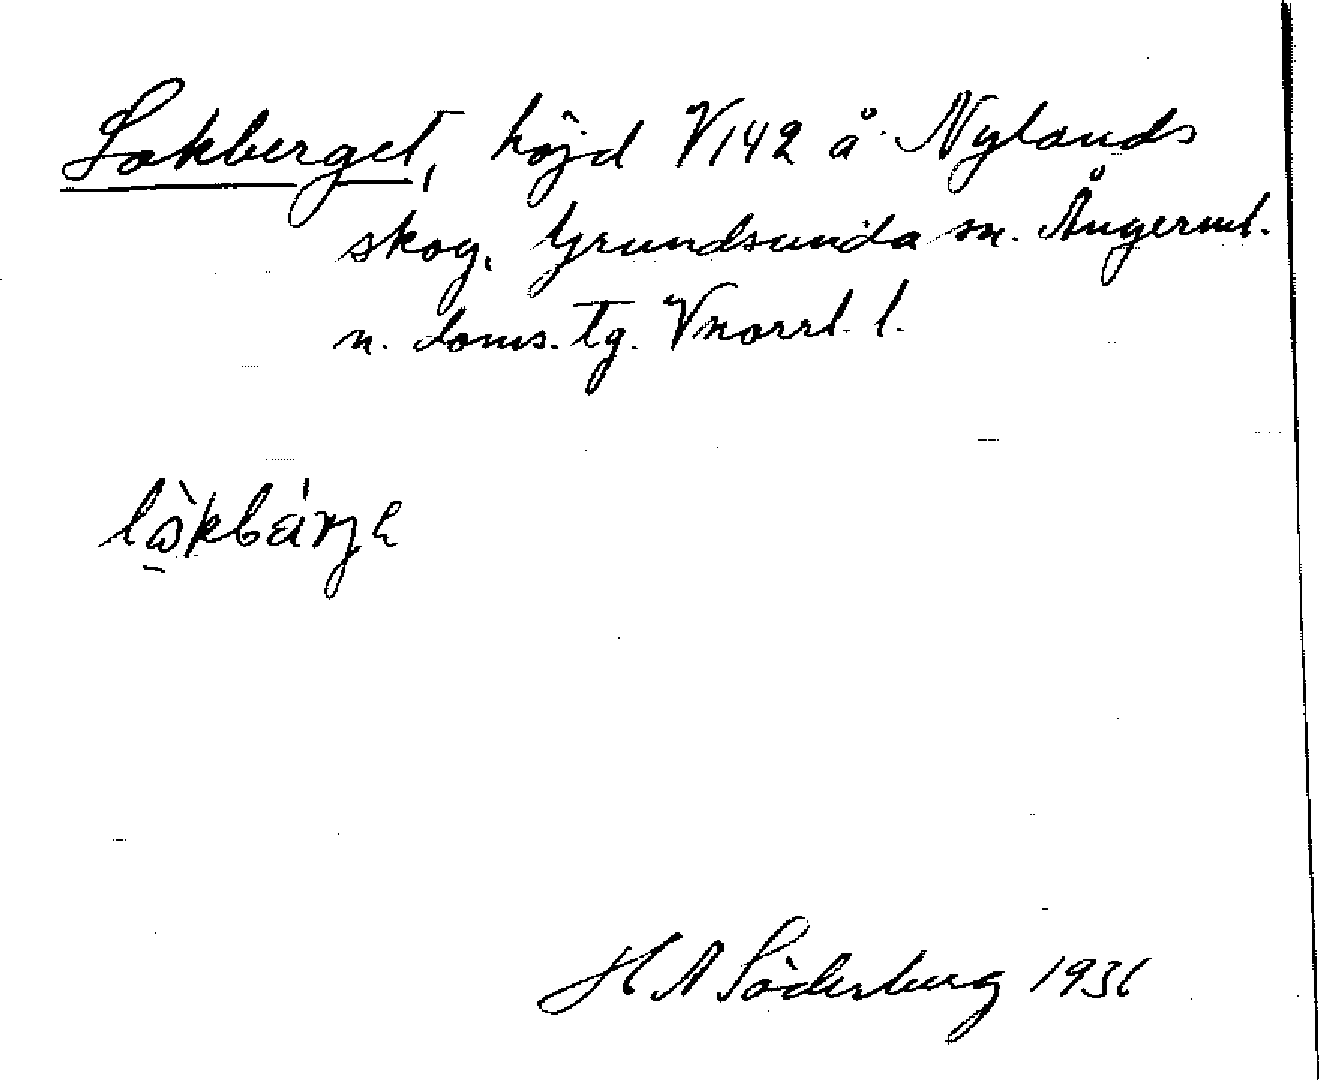 Lokberget, höjd V142 å Nylands
skog, Grundsunda sn. Ångerml.
n. doms. tg. Vnorrl. l.
H A Söderberg 1931